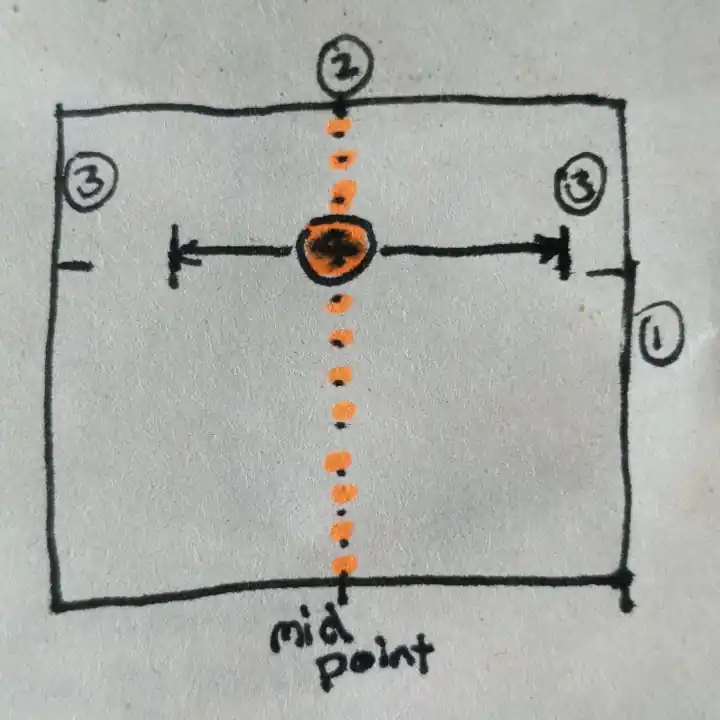 2
3
3
1
mid
point